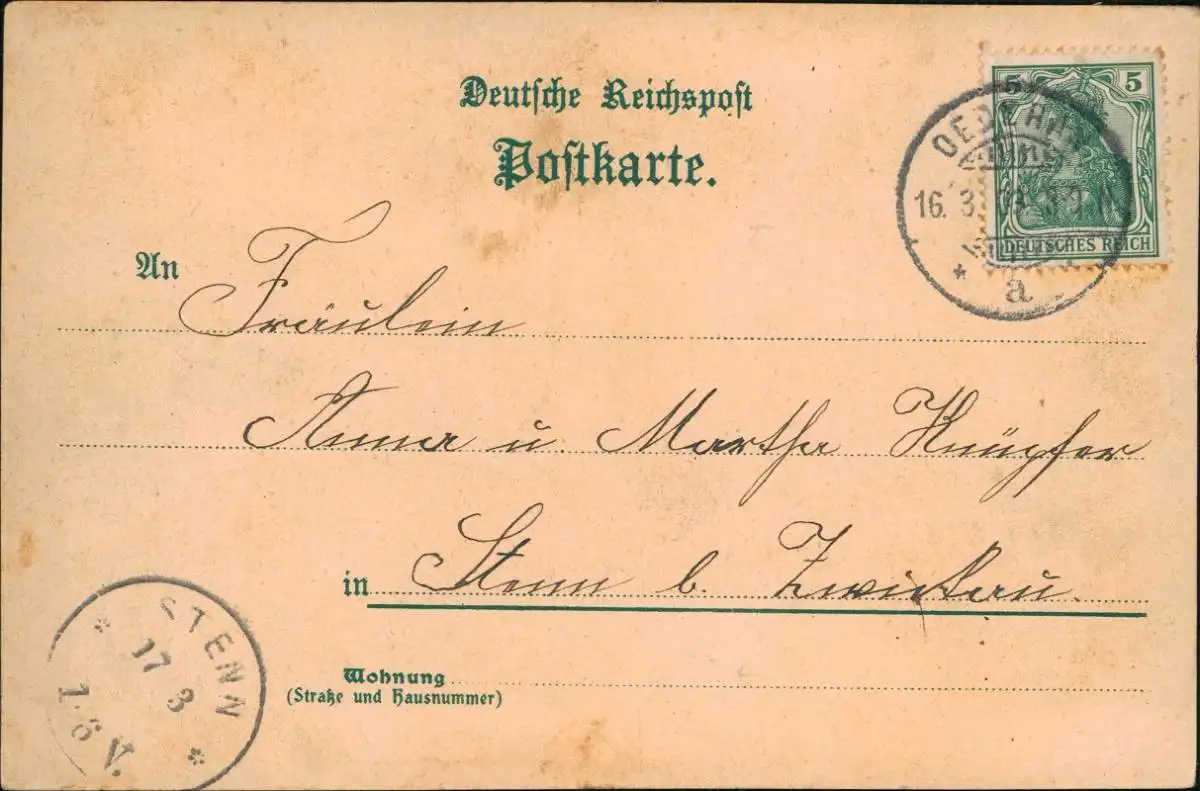 Deutsche Reichspost
Postkarte.
5 5
DEUTSCHES REICH
16. 3.
a
An Fräulein
Anna u. Martha Knüpfer
in Stenn b. Zwickau.
Wohnung
(Straße und Hausnummer)
STENN
17 3
1-6 V.